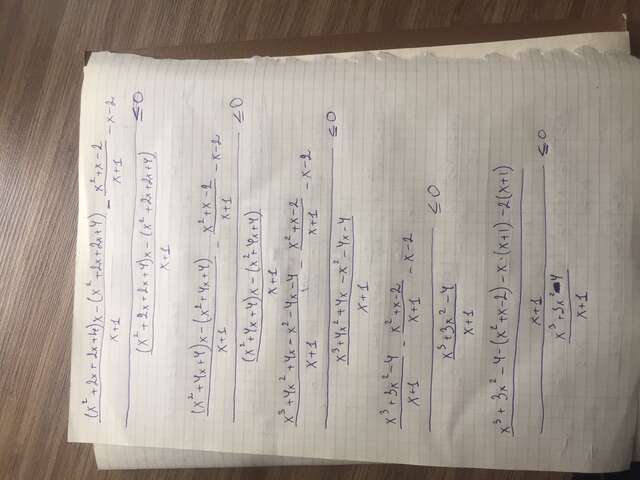 (x² + 2x + 2x + 4)x − (x² + 2x + 2x + 4) / x+1 − x² + x − 2 / x+1 − x − 2
≤ 0
(x² + 2x + 2x + 4)x − (x² + 2x + 2x + 4) / x+1
(x² + 4x + 4)x − (x² + 4x + 4) / x+1 − x² + x − 2 / x+1 − x − 2
≤ 0
(x² + 4x + 4)x − (x² + 4x + 4) / x+1
x³ + 4x² + 4x − x² − 4x − 4 / x+1 − x² + x − 2 / x+1 − x − 2
≤ 0
x³ + 4x² + 4x − x² − 4x − 4 / x+1
x³ + 3x² − 4 / x+1 − x² + x − 2 / x+1 − x − 2
≤ 0
x³ + 3x² − 4 / x+1
x³ + 3x² − 4 − (x² + x − 2) − x · (x+1) − 2(x+1)
x+1
≤ 0
x³ + 3x² − 4 / x+1